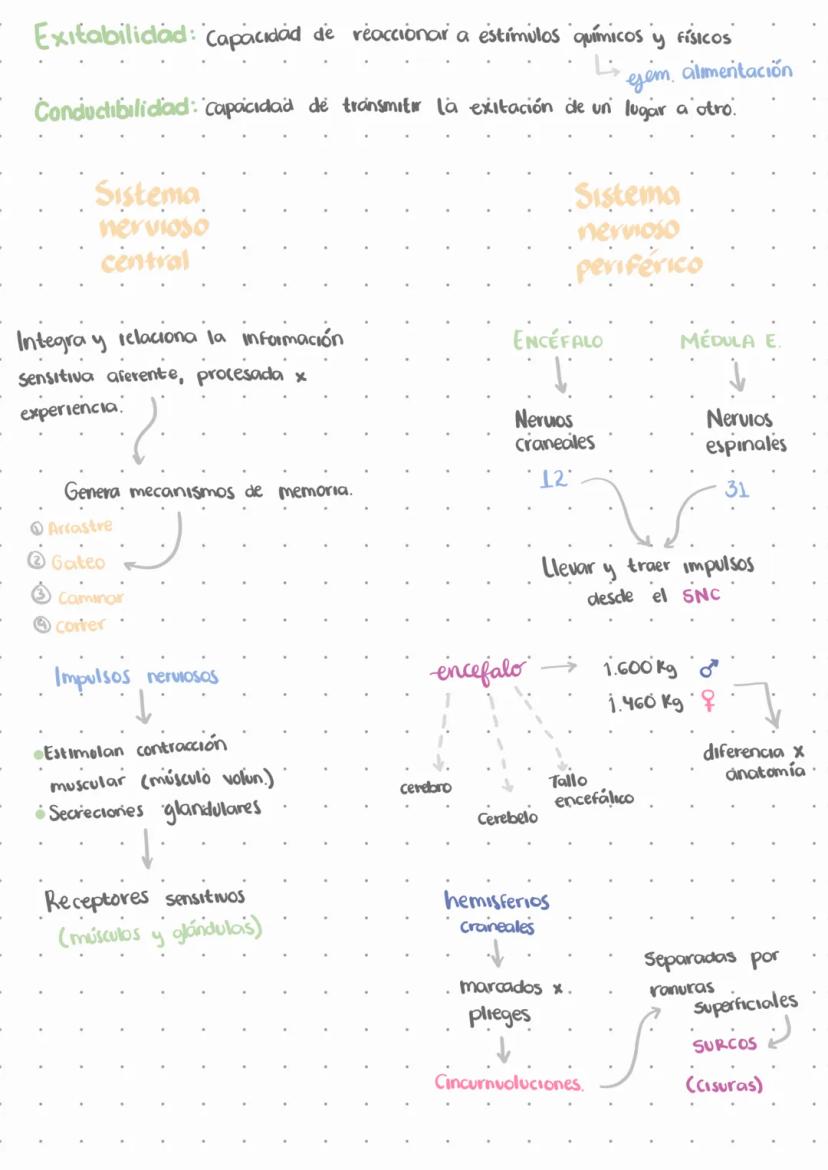 Exitabilidad: Capacidad de reaccionar a estímulos químicos y físicos
ejem. alimentación
Conductibilidad: Capacidad de transmitir la exitación de un lugar a otro.
Sistema
nervioso
central
Integra y relaciona la información
sensitiva aferente, procesada x
experiencia.
Genera mecanismos de memoria.
① Arrastre
② Gateo
③ Caminar
④ Correr
Impulsos nerviosos
Estimulan contracción
muscular (músculo volun.)
Secreciones glandulares
Receptores sensitivos
(músculos y glándulas)
Sistema
nervioso
periférico
ENCÉFALO
MÉDULA E.
Nervios
craneales
Nervios
espinales
12
31
Llevar y traer impulsos
desde el SNC
encefalo
1.600 Kg ♂
1.460 Kg ♀
diferencia x
anatomía
cerebro
Cerebelo
Tallo
encefálico
hemisferios
craneales
marcados x
plieges
Cincurnvoluciones.
Separadas por
ranuras
superficiales
SURCOS
(Cisuras)